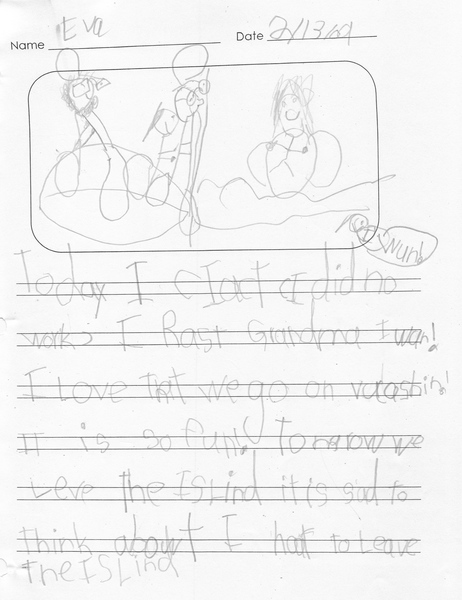 Name Eva Date 2/13/09
I Wun!
Today I did no
work I Rast Grandma I wan!
I Love that we go on vacashin!
IT is so fun! Tomarow we
Leve the ISLind it is sad to
think about I hatt to Leave
The ISLind